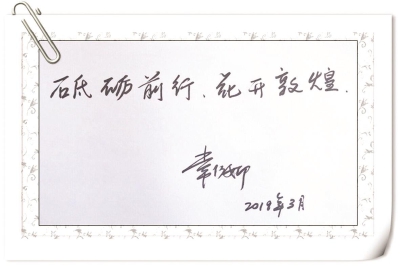 砥砺前行、花开敦煌.
常沙娜
2019年3月